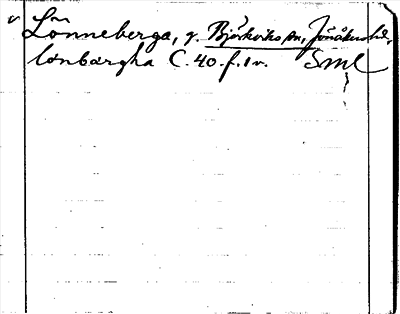 v Lönneberga, g. Björkviks sn, Jönåkers hd,
lønbærgha C. 40. f. 1 v. Sml